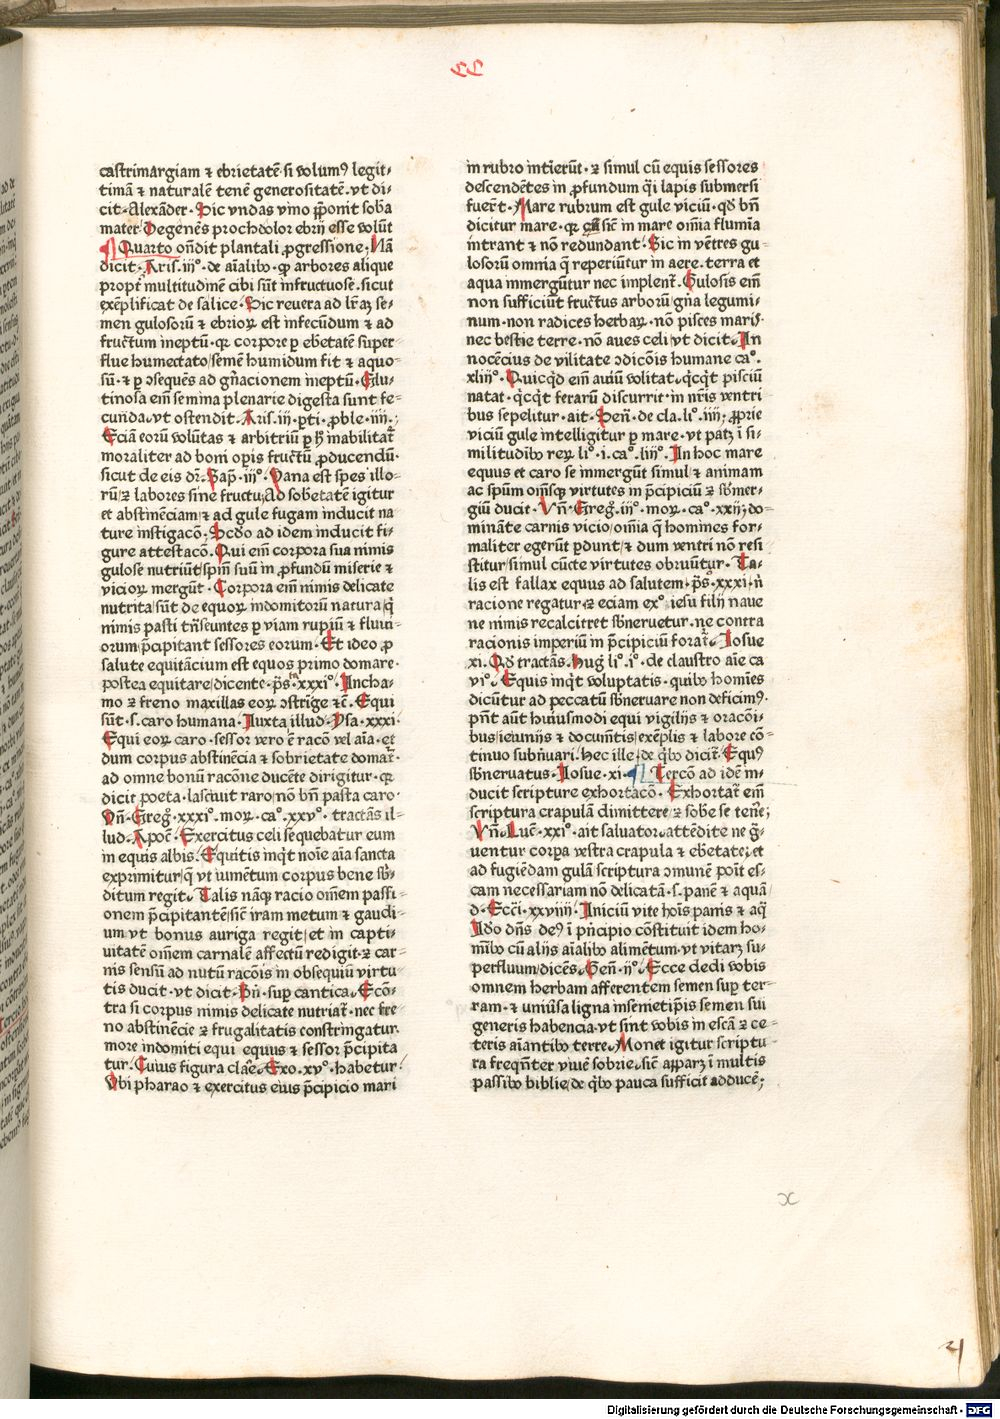 castrimargiam ⁊ ebrietatē si volumꝰ legit-
timā ⁊ naturalē tenē generositatē. vt di-
cit. Alexāder. Hic vndas vino p̄ponit soba
mater. Degenēs prochdolor ebrij esse volūt
Quarto ōndit plantali ꝓgressione, Nā
dicit. Aris. iijº. de aīalibꝫ. ꝙ arbores alique
propt̄ multitudinē cibi sūt infructuose. sicut
exēplificat de salice. Sic reuera ad lr̄aꝫ se-
men gulosorū ⁊ ebrioꝝ est infecūdum ⁊ ad
fructum ineptū. qꝛ corpore ꝑ ebetatē super-
flue humectato semē humidum fit ⁊ aquo-
sū. ⁊ ꝑ ꝯsequēs ad gn̄acionem ineptū. Glu-
tinosa eīn semina plenarie digesta sunt fe-
cunda. vt ostendit. Aris. iij. ꝑti. ꝓble. iiij.;
Eciā eorū volūtas ⁊ arbitriū ꝑ hͦ inabilitat̄
moraliter ad boni oꝑis fructū ꝓducendū.
sicut de eis dr̄. Sap̄. iijº. Vana est spes illo-
rū ⁊ labores sine fructu. Ad sobetatē igitur
et abstinēciam ⁊ ad gule fugam inducit na
ture instigacō. Scdo ad idem inducit fi-
gure attestacō. Qui eīn corpora sua nimis
gulose nutriūt spīm suū in ꝓfundū miserie ⁊
vicioꝝ mergūt. Corpora eīn nimis delicate
nutrita sūt de equoꝝ indomitorū natura q̄
nimis pasti trāseuntes ꝑ viam rupiū ⁊ fluui-
orum p̄cipitant sessores eorum. Et ideo ꝓ
salute equitācium est equos primo domare.
postea equitare dicente. pš. xxxiº. In cha-
mo ⁊ freno maxillas eoꝝ ꝯstrīge ⁊c̄. Equi
sūt. s. caro humana. Iuxta illud. Ysa. xxxi.
Equi eoꝝ caro. sessor vero ē racō vel aīa. et
dum corpus abstinēcia ⁊ sobrietate domat̄.
ad omne bonū racōne ducēte dirigitur. qꝛ
dicit poeta. lasciuit raro nō bn̄ pasta caro.
Vn̄. Greg̃. xxxiº. moꝝ. caº. xxvº. tractās il-
lud. Apoc̄. Exercitus celi sequebatur eum
in equis albis. Equitis inqͥt noīe aīa sancta
exprimitur q̄ vt iumētum corpus bene sb̄-
ditum regit. Talis nāqꝫ racio om̄em passi-
onem p̄cipitantē sic̄ iram metum ⁊ gaudi-
um vt bonus auriga regit et in capti-
uitatē om̄em carnalē affectū redigit. ⁊ car-
nis sensū ad nutū racōis in obsequiū virtu-
tis ducit. vt dicit. Bn̄. suꝑ cantica. Ecō-
tra si corpus nimis delicate nutriat̄. nec fre-
no abstinēcie ⁊ frugalitatis constringatur.
more indomiti equi equus ⁊ sessor p̄cipita
tur. Cuius figura claꝵ. Exo. xvº. habetur.
Vbi pharao ⁊ exercitus eius p̄cipicio mari
in rubro intierūt. ⁊ simul cū equis sessores
descendētes in ꝓfundum q̄si lapis submersi
fuerūt. Mare rubrum est gule viciū. qd̄ bn̄
dicitur mare. qꝛ sic̄ in mare om̄ia flumīa
intrant ⁊ nō redundant. Sic in vētres gu-
losorū omnia q̄ reperiūtur in aere. terra et
aqua immergūtur nec implent̄. Gulosis eīn
non sufficiūt fructus arborū gn̄a legumi-
num. non radices herbaꝝ. nō pisces maris
nec bestie terre. nō aues celi vt dicit. In
nocēcius de vilitate ꝯdicōis humane caº.
xliijº. Quicqͥd eīn auiū volitat. qͥcqͥt pisciū
natat. qͥcqͥt ferarū discurrit. in nr̄is ventri
bus sepelitur. ait. Sen̄. de cla. lº. iiij; ꝓprie
viciū gule intelligitur ꝑ mare. vt patꝫ ī si-
militudībꝫ reꝝ liº. i. caº. liijº. In hoc mare
equus et caro se immergūt simul ⁊ animam
ac spīm om̄esqꝫ virtutes in p̄cipiciū ⁊ sb̄mer-
giū ducit. Vn̄. Greg̃. iijº. moꝝ. caº. xxij; do-
mināte carnis vicio om̄ia q̄ homines for-
maliter egerūt ꝑdunt ⁊ dum ventri nō resi
stitur simul cūcte virtutes obruūtur. Ta-
lis est fallax equus ad salutem. pš. xxxi. n̄
racione regatur ⁊ eciam exº. iesu filij naue
ne nimis recalcitret sb̄neruetur. ne contra
racionis imperiū in p̄cipiciū forat̄. Iosue
xi. Qd̄ tractās. Hug̃ liº. iº. de claustro aīe ca
viº. Equis inqͥt voluptatis. quibꝫ homīes
dicūtur ad peccatū sb̄neruare non deficimꝰ.
pn̄t aūt huiusmodi equi vigilijs ⁊ oracōi-
bus ieiunijs ⁊ documētis exēplis ⁊ labore cō-
tinuo subn̄uari. hec ille de q̄bꝫ dicit̄. Equꝰ
sb̄neruatus. Iosue. xi. Tercō ad idē in-
ducit scripture exhortacō. Exhortat̄ eīn
scriptura crapulā dimittere ⁊ sobe se ten̄e;
Vn̄. Luc̄. xxiº. ait saluator. attēdite ne g̃-
uentur corꝑa vestra crapula ⁊ ebetate; et
ad fugiēdam gulā scriptura ꝯmunē pōit es-
cam necessariam nō delicatā. s. panē ⁊ aquā
d̄. Ecc̄i. xxviiij. Iniciū vite hoīs panis ⁊ aq̄
Ido dn̄s deꝰ i p̄ncipio cōstituit idem ho-
mībꝫ cū alijs aīalibꝫ alimētum. vt vitarꝫ su-
perfluum dicēs. Gen̄. ijº. Ecce dedi vobis
omnem herbam afferentem semen suꝑ ter-
ram. ⁊ uniūsa ligna in semetip̄is semen sui
generis habencia. vt sint vobis in escā ⁊ ce-
teris aīantibꝫ terre. Monet igitur scriptu-
ra freqn̄ter viuē sobrie. sic̄ apparꝫ ī multis
passibꝫ biblie de q̄bꝫ pauca sufficit adducē;
x
21
Digitalisierung gefördert durch die Deutsche Forschungsgemeinschaft - DFG